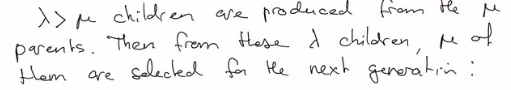 λ > μ children are produced from the μ
parents. Then from these λ children, μ of
them are selected for the next generation :